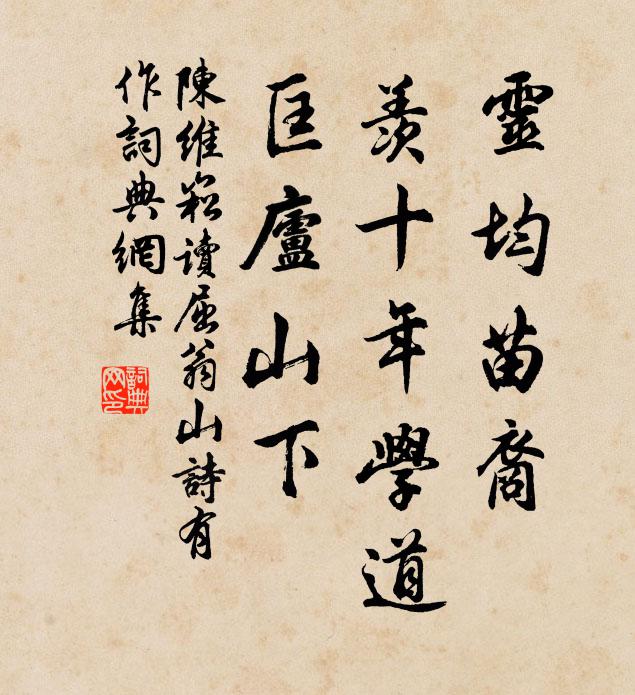 靈均苗裔
羨十年學道
匡廬山下
陳維崧讀屈翁山詩有
作詞典網集
詞典網印